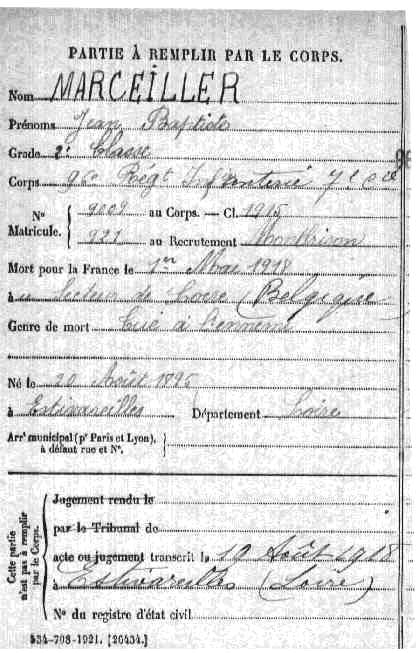 PARTIE À REMPLIR PAR LE CORPS.
Nom MARCEILLER
Prénoms Jean Baptiste
Grade 2e Classe
Corps 96e Regt Infanterie 7e Cie
Nº 9009 au Corps. — Cl. 1915
Matricule. 921 au Recrutement Montbrison
Mort pour la France le 1er Mai 1918
à u secteur de Locre (Belgique)
Genre de mort Tué à l'ennemi
Né le 20 Août 1895
à Estivareilles Département Loire
Arrt municipal (pr Paris et Lyon),
à défaut rue et Nº.
Cette partie
n'est pas à remplir
par le Corps.
Jugement rendu le
par le Tribunal de
acte ou jugement transcrit le 19 Août 1918
à Estivareilles (Loire)
Nº du registre d'état civil
534-708-1921. [26434.]